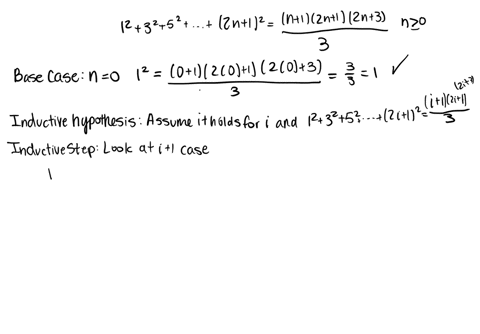 1² + 3² + 5² + ... + (2n+1)² = (n+1)(2n+1)(2n+3) / 3 n≥0
Base Case: n=0 1² = (0+1)(2(0)+1)(2(0)+3) / 3 = 3/3 = 1 ✓
Inductive hypothesis: Assume it holds for i and 1² + 3² + 5² ... + (2i+1)² = (i+1)(2i+1)(2i+3) / 3
Inductive Step: Look at i+1 case
1